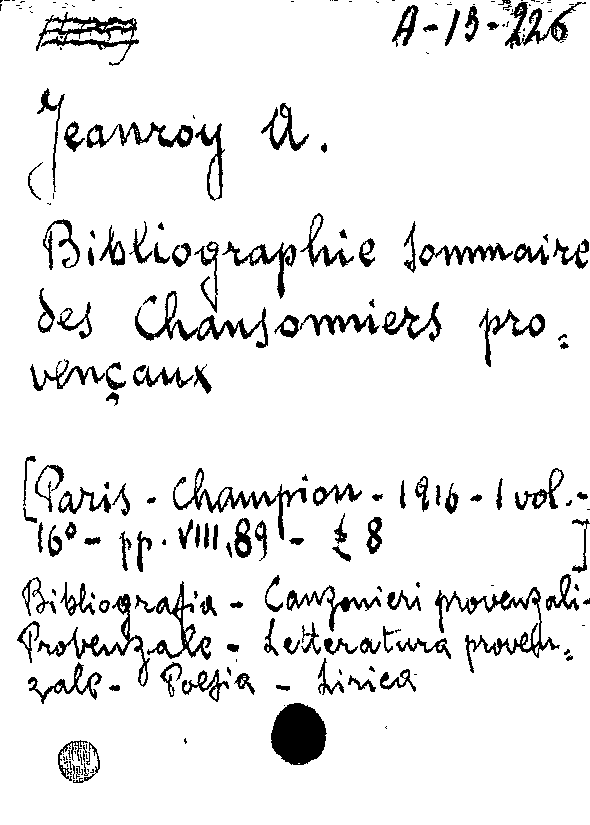 A-13-226
Jeanroy A.
Bibliographie sommaire
des Chansonniers pro=
vençaux
[Paris - Champion - 1916 - 1 vol. -
16° - pp. VIII, 89 - £ 8 ]
Bibliografia - Canzonieri provenzali -
Provenzale - Letteratura proven=
zale - Poesia - Lirica